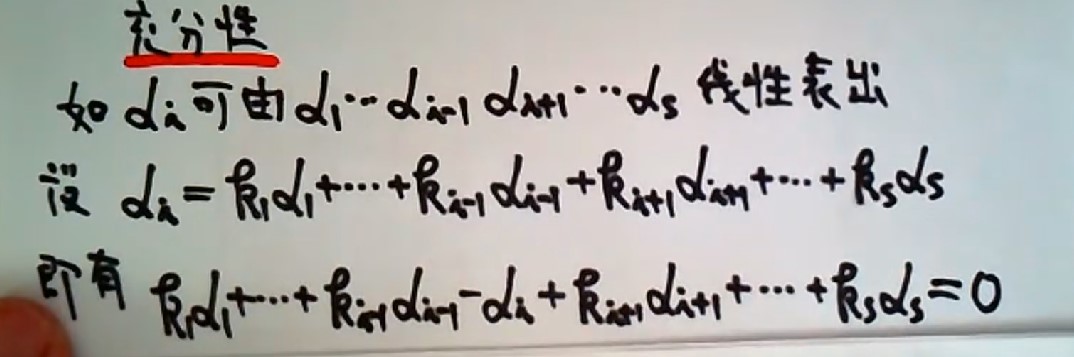 充分性
如 αi 可由 α1⋯αi-1 αi+1⋯αs 线性表出
设 αi = k1α1+⋯+ki-1αi-1+ki+1αi+1+⋯+ksαs
即有 k1α1+⋯+ki-1αi-1-αi+ki+1αi+1+⋯+ksαs=0